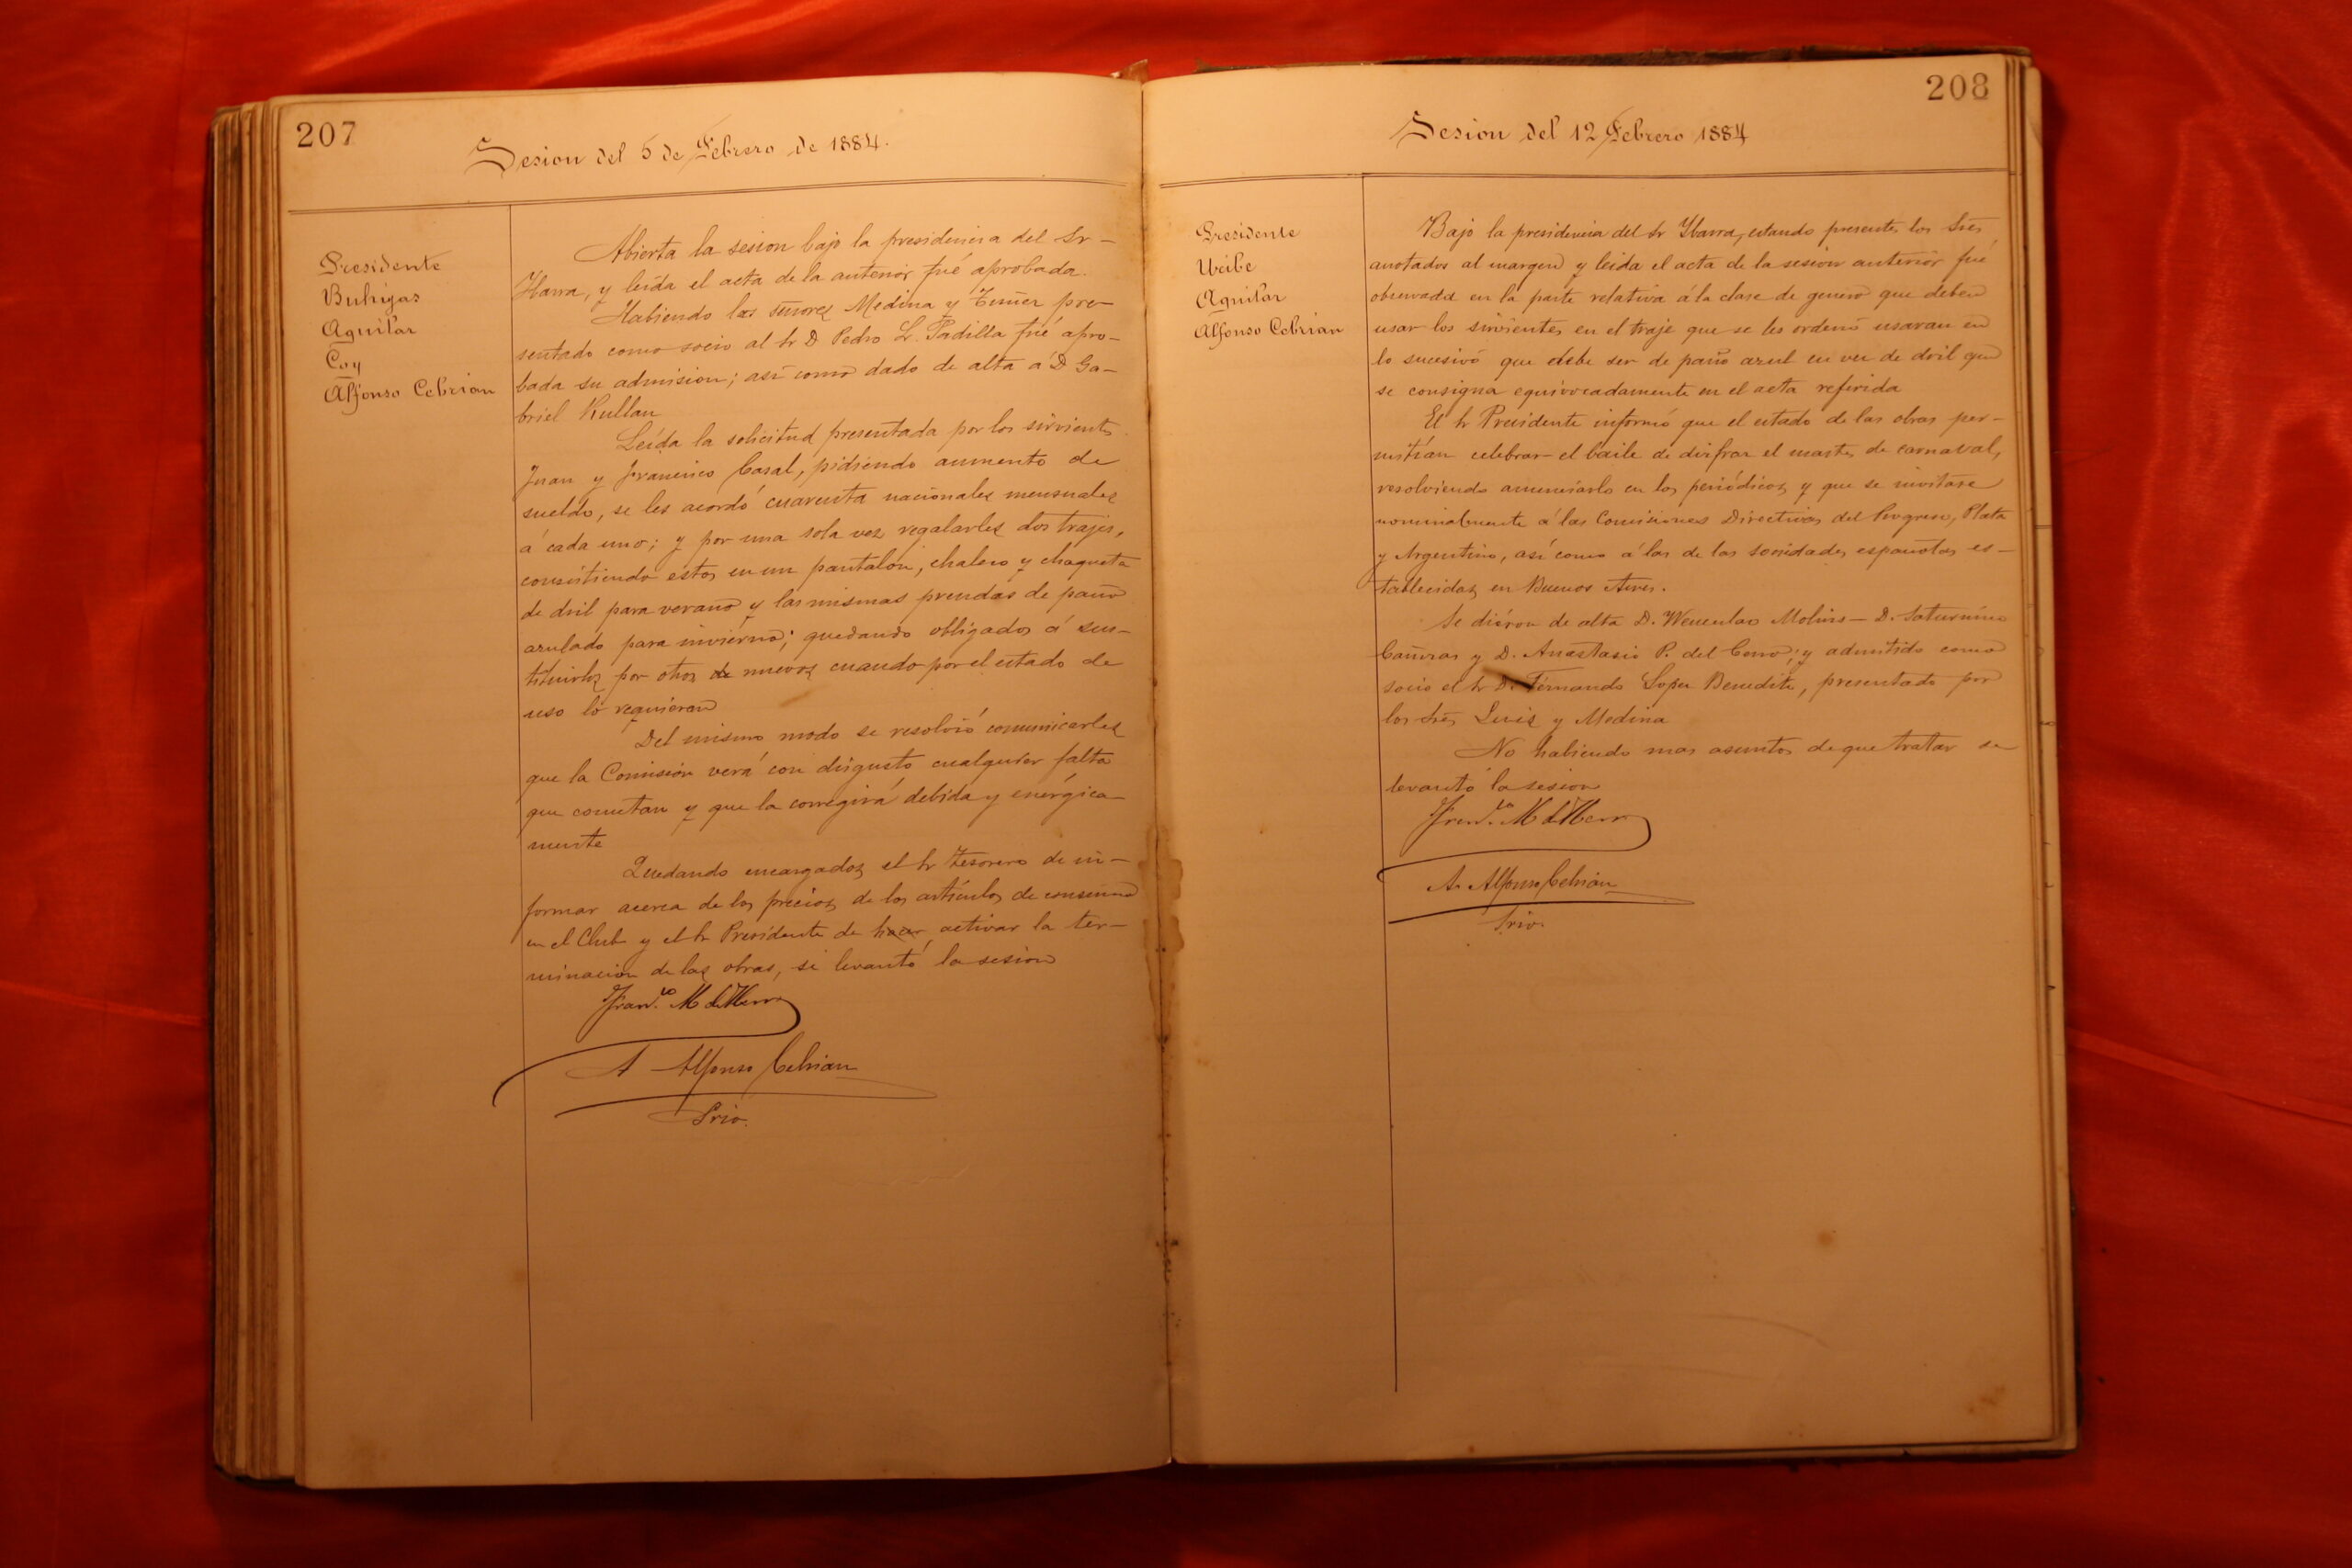 207
Sesion del 5 de Febrero de 1884.
Presidente
Buhigas
Aguilar
Coy
Alfonso Cebrian
Abierta la sesion bajo la presidencia del Sr
Ybarra, y leída el acta de la anterior fué aprobada.
Habiendo los señores Medina y pre-
sentado como socio al Sr D Pedro L. Padilla fué apro-
bada su admision; así como dado de alta a D Ga-
briel Rullan
Leída la solicitud presentada por los sirvientes
Juan y Francisco Casal, pidiendo aumento de
sueldo, se les acordó cuarenta nacionales mensuales
á cada uno; y por una sola vez regalarles dos trajes,
consistiendo estos en un pantalon, chaleco y chaqueta
de dril para verano y las mismas prendas de paño
azulado para invierno; quedando obligados á sus-
tituirlos por otros de nuevos cuando por el estado de
uso lo requieran
Del mismo modo se resolvió comunicarles
que la Comision verá con disgusto cualquier falta
que cometan y que la corregirá debida y enérgica-
mente
Quedando encargados el Sr Tesorero de in-
formar acerca de los precios de los artículos de consumo
en el Club y el Sr Presidente de hacer activar la ter-
minacion de las obras, se levantó la sesion
Franco. M de Ybarra
A Alfonso Cebrian
Srio.
208
Sesion del 12 Febrero 1884
Presidente
Uribe
Aguilar
Alfonso Cebrian
Bajo la presidencia del Sr Ybarra, estando presentes los Sres
anotados al margen y leida el acta de la sesion anterior fué
observada en la parte relativa á la clase de genero que deben
usar los sirvientes en el traje que se les ordenó usaran en
lo sucesivo que debe ser de paño azul en vez de dril que
se consigna equivocadamente en el acta referida
El Sr Presidente informó que el estado de las obras per-
mitían celebrar el baile de disfraz el martes de carnaval,
resolviendo anunciarlo en los periódicos y que se invitase
nominalmente á las Comisiones Directivas del Progreso, Plata
y Argentino, así como á las de las sociedades españolas es-
tablecidas en Buenos Aires.
Se diéron de alta D. Wenceslao Molins – D. Saturnino
Cañizas y D. Anastasio P. del Cerro; y admitido como
socio el Sr D. Fernando Lopez Benedito, presentado por
los Sres Luis y Medina
No habiendo mas asuntos de que tratar se
levantó la sesion
Franco. M de Ybarra
A. Alfonso Cebrian
Srio.